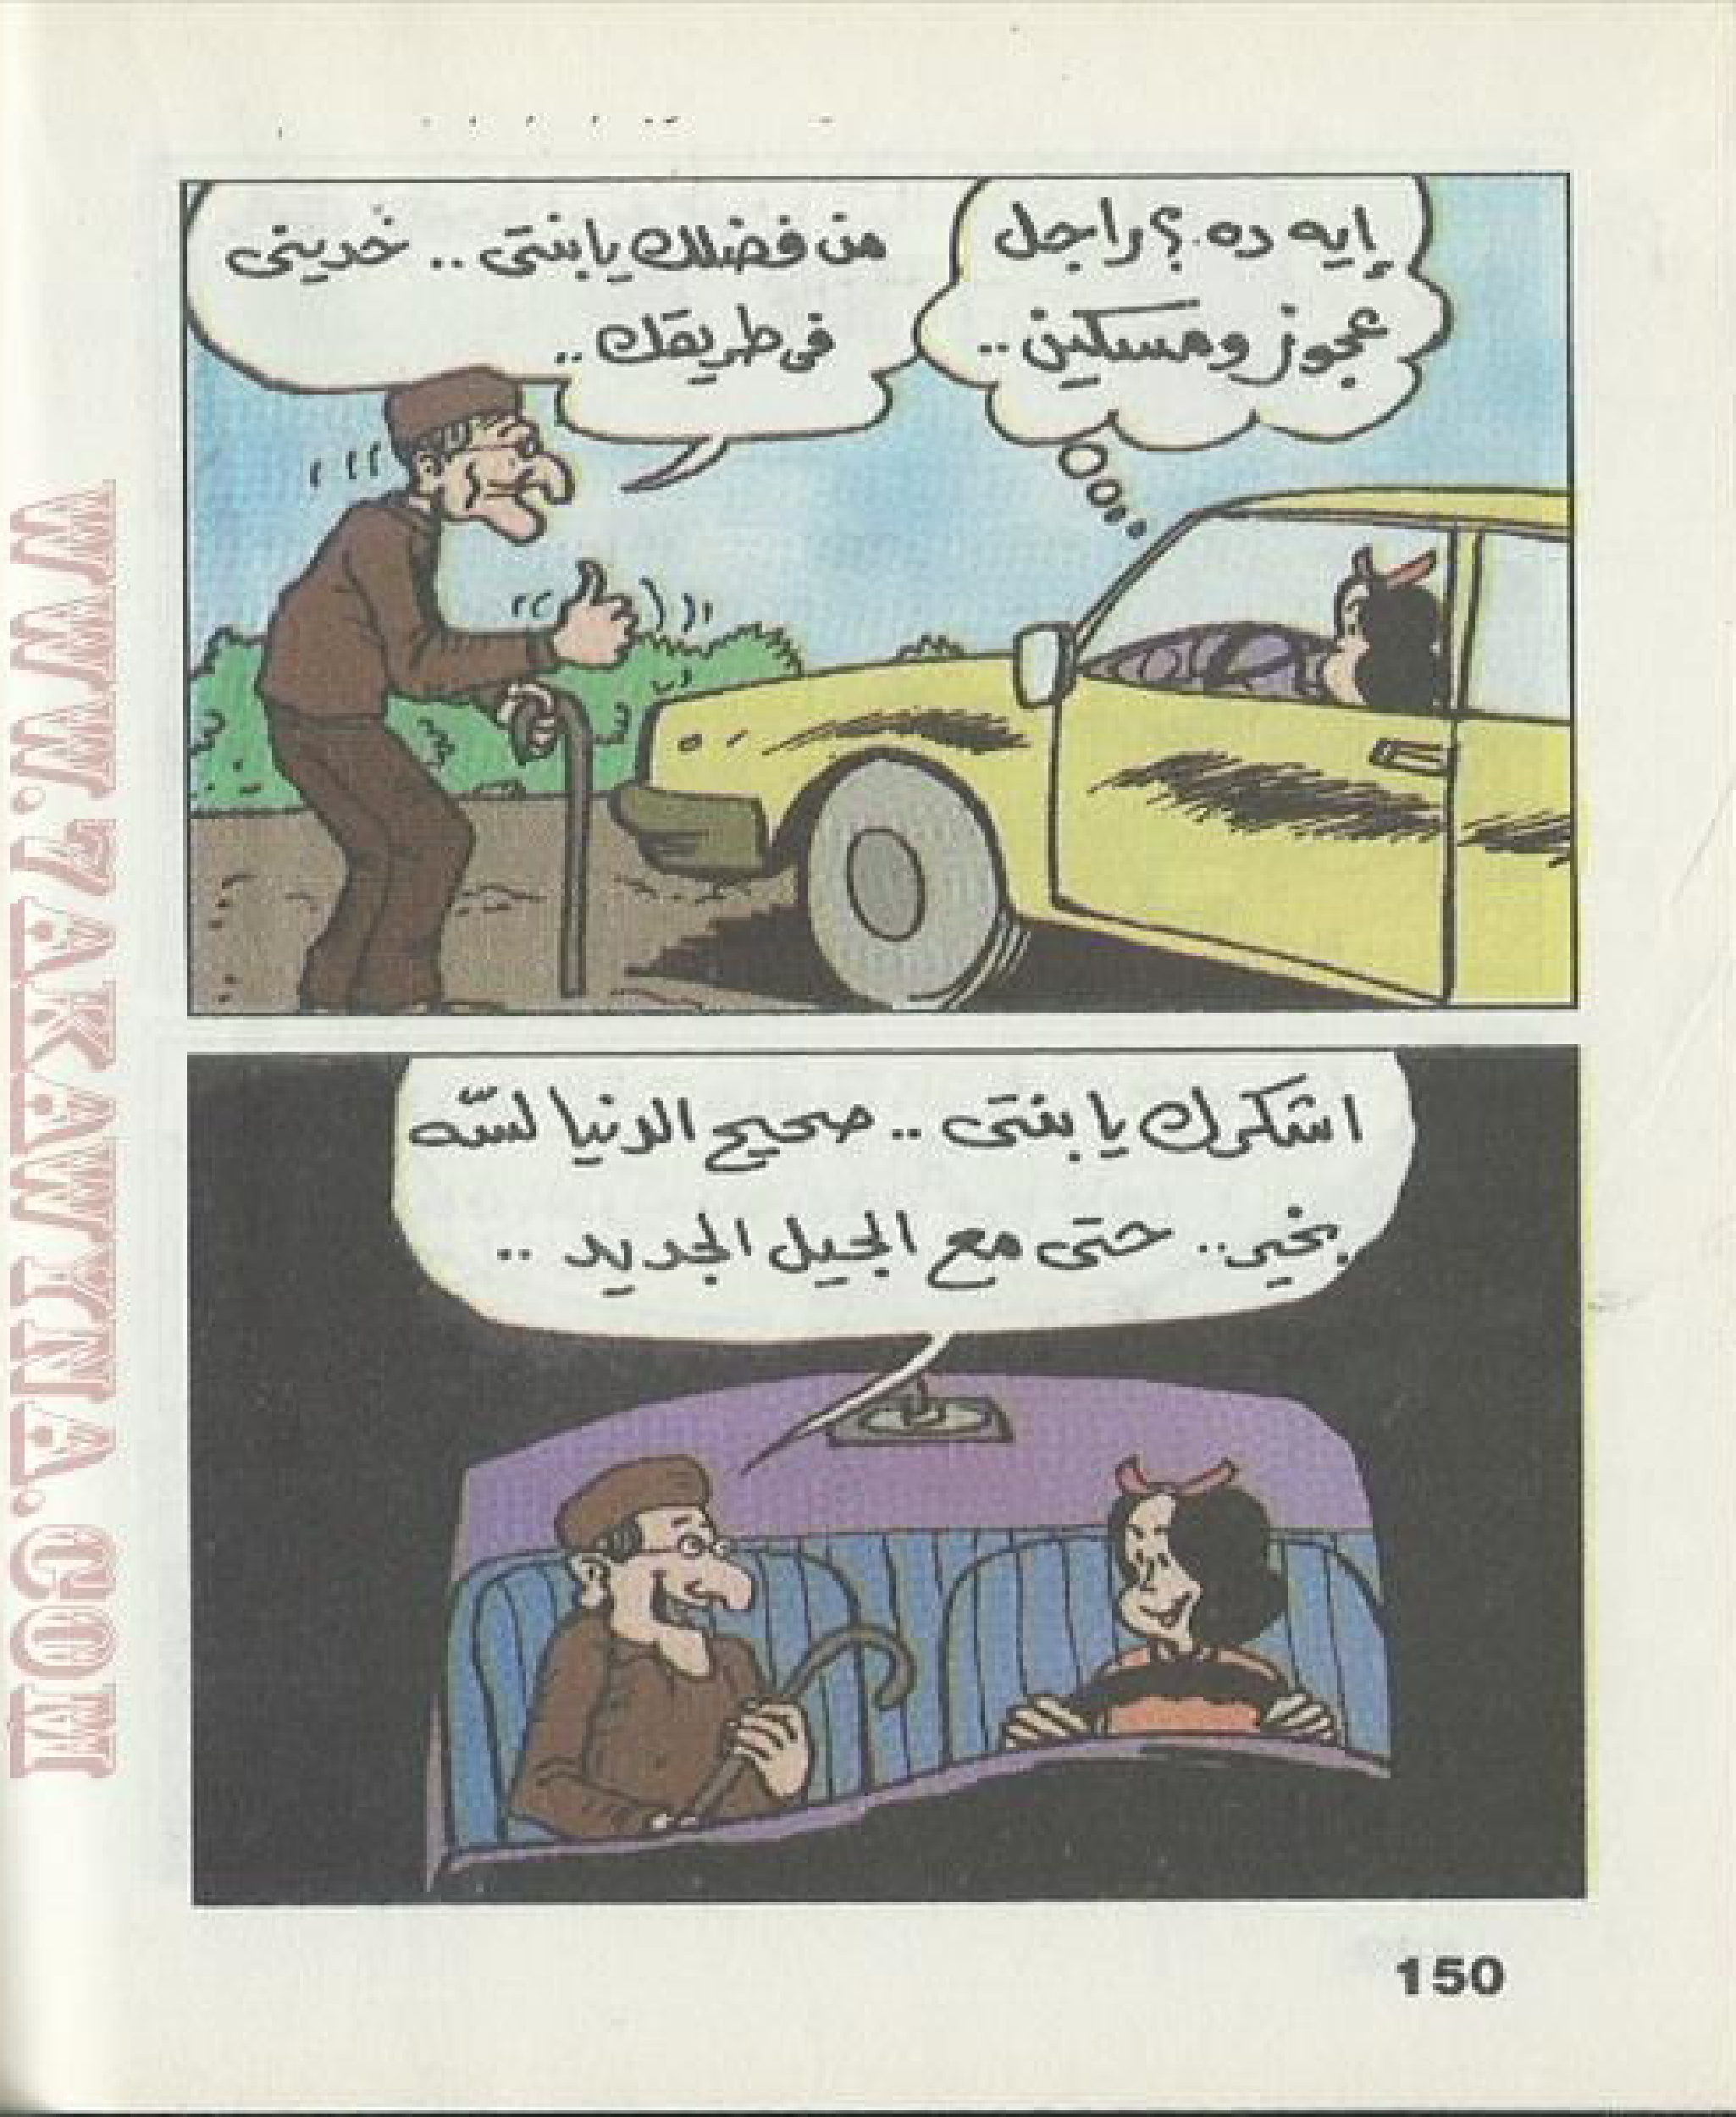 إيه ده.؟ راجل
عجوز ومسكين..
من فضلك يابنتى .. خدينى
فى طريقك ..
اشكرك يا بنتى .. صحيح الدنيا لسّه
بخير.. حتى مع الجيل الجديد ..
150
WWW.7AKAWINA.COM